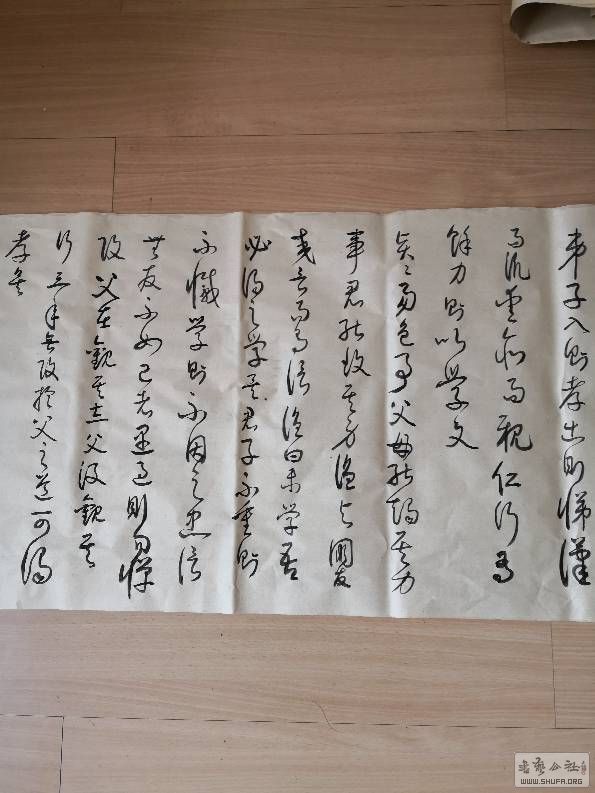 弟子入则孝出则悌谨
而汎爱众而親仁行有
餘力则以学文
贤〻易色事父母能竭其力
事君能致其身與朋友
交言而有信虽曰未学吾
必谓之学矣君子不重则
不威学则不固主忠信
無友不如己者过则勿惮
改父在觀其志父没觀其
行三年無改於父之道可谓
孝矣
书艺公社
WWW.SHUFA.ORG